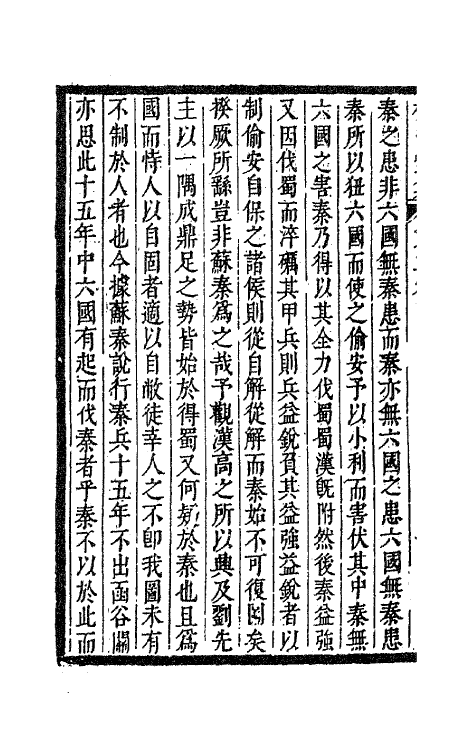 秦之患非六國無秦患而秦亦無六國之患六國無秦患
秦所以狃六國而使之偷安予以小利而害伏其中秦無
六國之害秦乃得以其全力伐蜀蜀漢旣附然後秦益強
又因伐蜀而淬礪其甲兵則兵益銳負其益強益銳者以
制偷安自保之諸侯則從自解從解而秦始不可復圖矣
揆厥所繇豈非蘇秦爲之哉予觀漢高之所以興及劉先
主以一隅成鼎足之勢皆始於得蜀又何疑於秦也且爲
國而恃人以自固者適以自敝徒幸人之不卽我圖未有
不制於人者也今據蘇秦說行秦兵十五年不出函谷關
亦思此十五年中六國有起而伐秦者乎秦不以於此而